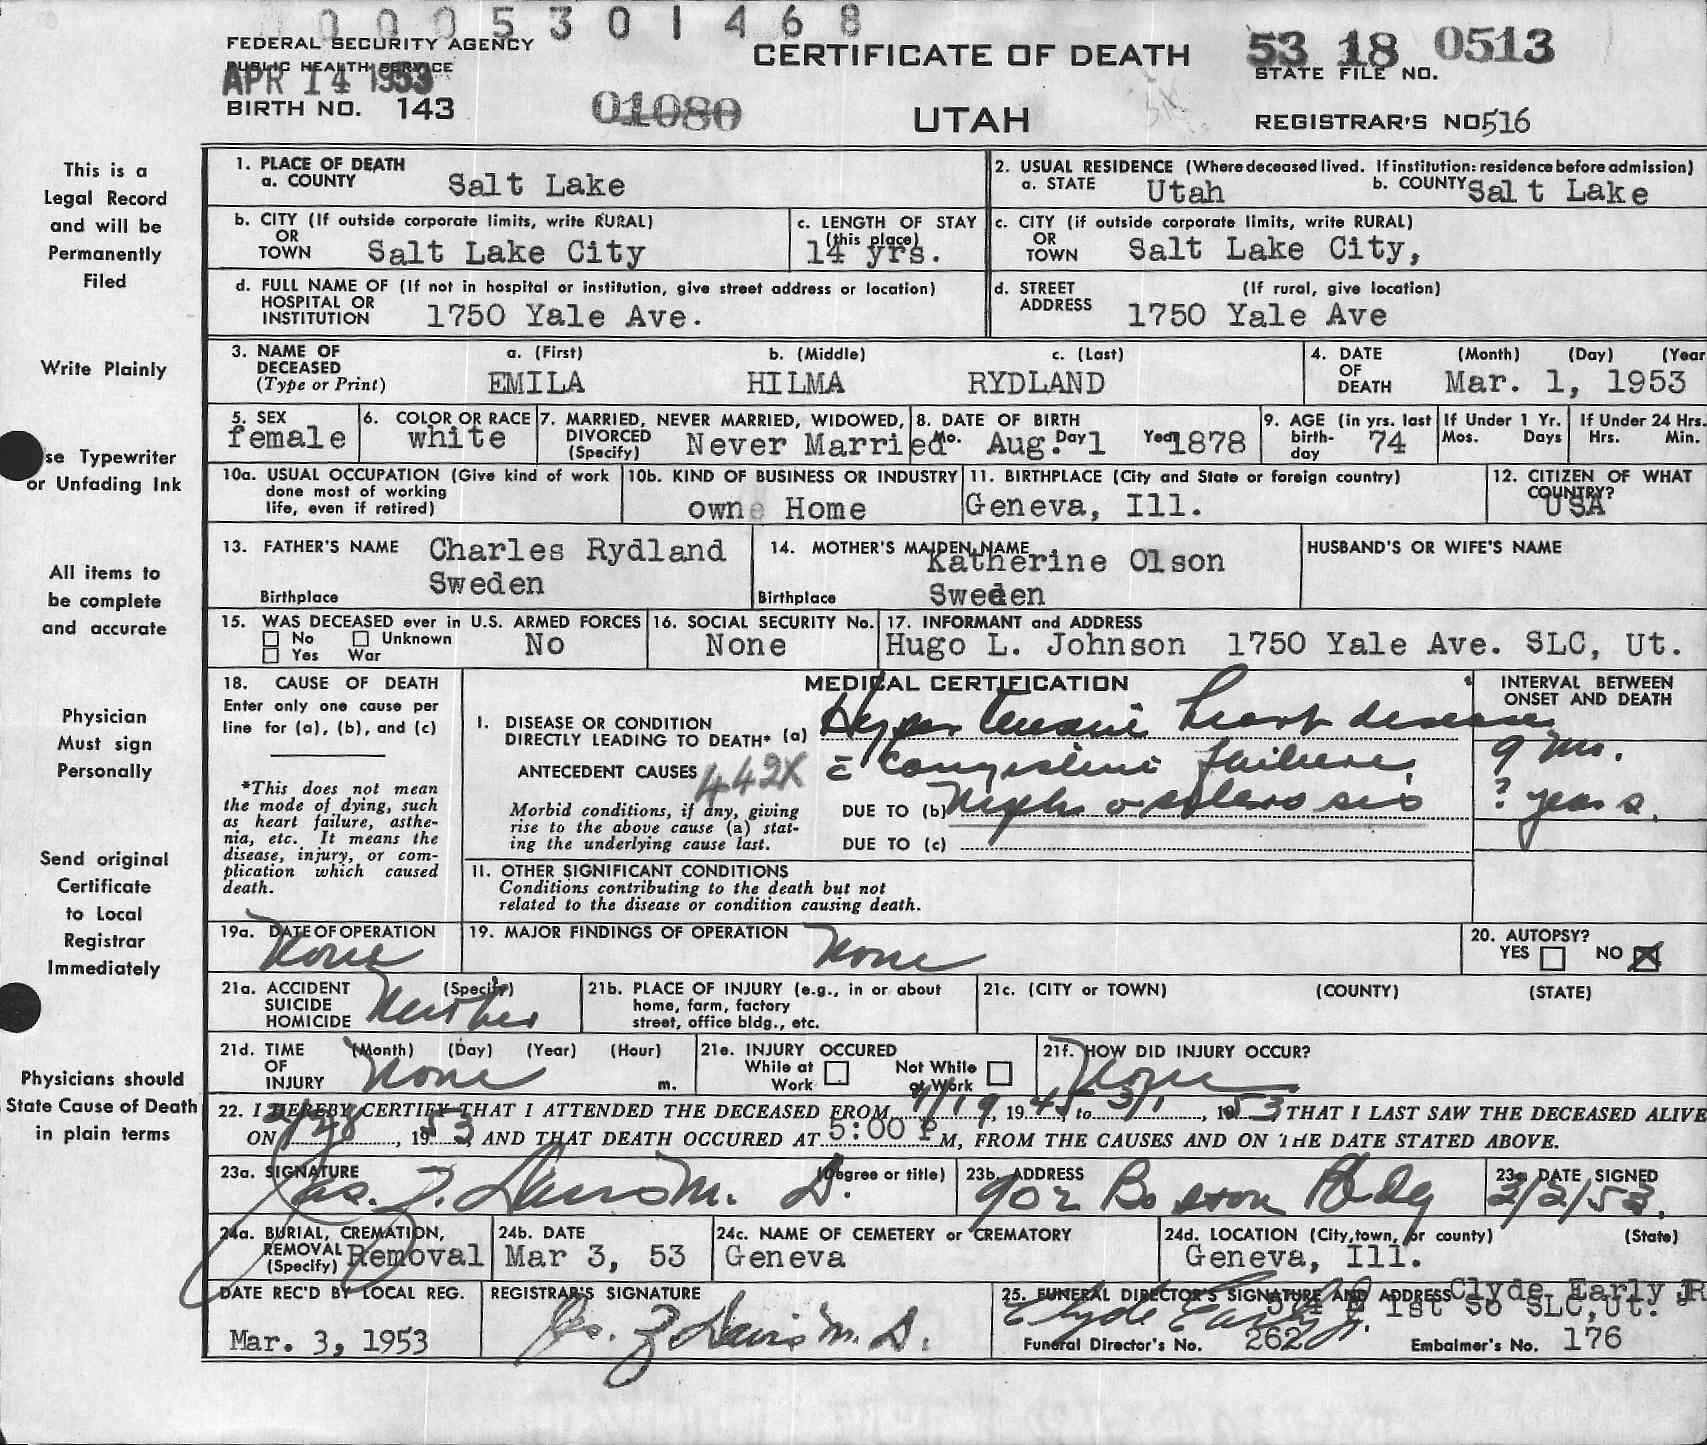 0005301468
FEDERAL SECURITY AGENCY
PUBLIC HEALTH SERVICE
APR 14 1953
BIRTH NO. 143
01080
CERTIFICATE OF DEATH
UTAH
53 18 0513
STATE FILE NO.
REGISTRAR'S NO. 516
This is a
Legal Record
and will be
Permanently
Filed
Write Plainly
se Typewriter
or Unfading Ink
All items to
be complete
and accurate
Physician
Must sign
Personally
Send original
Certificate
to Local
Registrar
Immediately
Physicians should
State Cause of Death
in plain terms
1. PLACE OF DEATH
a. COUNTY Salt Lake
2. USUAL RESIDENCE (Where deceased lived. If institution: residence before admission)
a. STATE Utah b. COUNTY Salt Lake
b. CITY (If outside corporate limits, write RURAL)
OR
TOWN Salt Lake City
c. LENGTH OF STAY
(this place)
14 yrs.
c. CITY (if outside corporate limits, write RURAL)
OR
TOWN Salt Lake City,
d. FULL NAME OF (If not in hospital or institution, give street address or location)
HOSPITAL OR
INSTITUTION 1750 Yale Ave.
d. STREET (If rural, give location)
ADDRESS 1750 Yale Ave
3. NAME OF a. (First) b. (Middle) c. (Last)
DECEASED
(Type or Print) EMILA HILMA RYDLAND
4. DATE (Month) (Day) (Year
OF
DEATH Mar. 1, 1953
5. SEX
female
6. COLOR OR RACE
white
7. MARRIED, NEVER MARRIED, WIDOWED,
DIVORCED
(Specify) Never Married
8. DATE OF BIRTH
Mo. Aug. Day 1 Year 1878
9. AGE (in yrs. last
birth-
day 74
If Under 1 Yr.
Mos. Days
If Under 24 Hrs.
Hrs. Min.
10a. USUAL OCCUPATION (Give kind of work
done most of working
life, even if retired)
10b. KIND OF BUSINESS OR INDUSTRY
owne Home
11. BIRTHPLACE (City and State or foreign country)
Geneva, Ill.
12. CITIZEN OF WHAT
COUNTRY?
USA
13. FATHER'S NAME Charles Rydland
Birthplace Sweden
14. MOTHER'S MAIDEN NAME Katherine Olson
Birthplace Sweden
HUSBAND'S OR WIFE'S NAME
15. WAS DECEASED ever in U.S. ARMED FORCES
No Unknown
Yes War
No
16. SOCIAL SECURITY No.
None
17. INFORMANT and ADDRESS
Hugo L. Johnson 1750 Yale Ave. SLC, Ut.
18. CAUSE OF DEATH
Enter only one cause per
line for (a), (b), and (c)
*This does not mean
the mode of dying, such
as heart failure, asthe-
nia, etc. It means the
disease, injury, or com-
plication which caused
death.
MEDICAL CERTIFICATION
INTERVAL BETWEEN
ONSET AND DEATH
I. DISEASE OR CONDITION
DIRECTLY LEADING TO DEATH* (a) Hypertensive heart disease
ANTECEDENT CAUSES 442X c̄ Congestive failure, 9 mo.
Morbid conditions, if any, giving
rise to the above cause (a) stat-
ing the underlying cause last.
DUE TO (b) Nephrosclerosis ? years.
DUE TO (c)
II. OTHER SIGNIFICANT CONDITIONS
Conditions contributing to the death but not
related to the disease or condition causing death.
19a. DATE OF OPERATION
None
19. MAJOR FINDINGS OF OPERATION None
20. AUTOPSY?
YES NO
21a. ACCIDENT (Specify)
SUICIDE
HOMICIDE Neither
21b. PLACE OF INJURY (e.g., in or about
home, farm, factory
street, office bldg., etc.
21c. (CITY or TOWN) (COUNTY) (STATE)
21d. TIME (Month) (Day) (Year) (Hour)
OF
INJURY None m.
21e. INJURY OCCURED
While at Not While
Work at Work
21f. HOW DID INJURY OCCUR?
None
22. I HEREBY CERTIFY THAT I ATTENDED THE DECEASED FROM /19, 1945 to 3/1, 1953 THAT I LAST SAW THE DECEASED ALIVE
ON 2/28, 1953, AND THAT DEATH OCCURED AT 5:00 P M, FROM THE CAUSES AND ON THE DATE STATED ABOVE.
23a. SIGNATURE (Degree or title)
Jas. Z. Davis M. D.
23b. ADDRESS
902 Boston Bldg
23c. DATE SIGNED
3/2/53.
24a. BURIAL, CREMATION,
REMOVAL
(Specify) Removal
24b. DATE
Mar 3, 53
24c. NAME OF CEMETERY or CREMATORY
Geneva
24d. LOCATION (City, town, or county) (State)
Geneva, Ill.
DATE REC'D BY LOCAL REG.
Mar. 3, 1953
REGISTRAR'S SIGNATURE
Jas. Z. Davis M. D.
25. FUNERAL DIRECTOR'S SIGNATURE AND ADDRESS Clyde Early JR
Clyde Early Jr. 1st So SLC, Ut.
Funeral Director's No. 262 Embalmer's No. 176